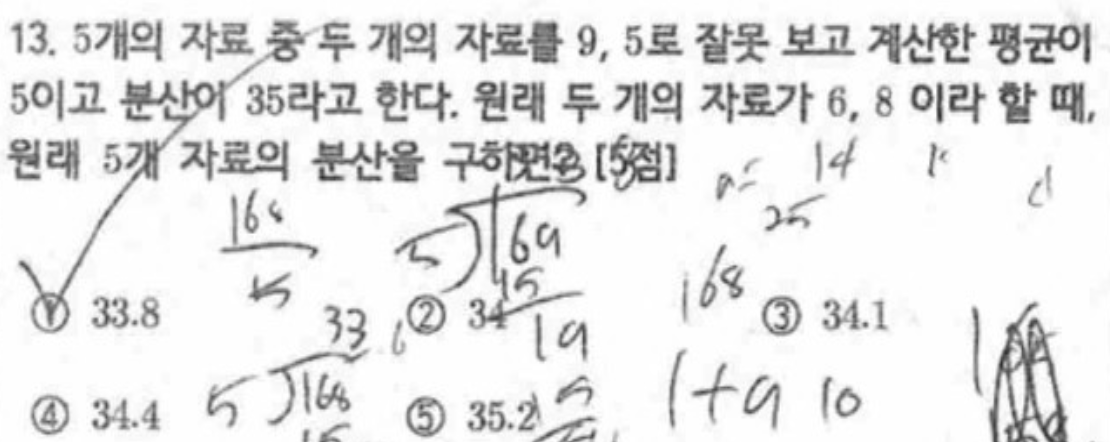 13. 5개의 자료 중 두 개의 자료를 9, 5로 잘못 보고 계산한 평균이
5이고 분산이 35라고 한다. 원래 두 개의 자료가 6, 8 이라 할 때,
원래 5개 자료의 분산을 구하면? [5점]
14
25
168
5
5 169
15
19
168
① 33.8 ② 34 ③ 34.1
33
5 168
1+9 10
④ 34.4 ⑤ 35.2